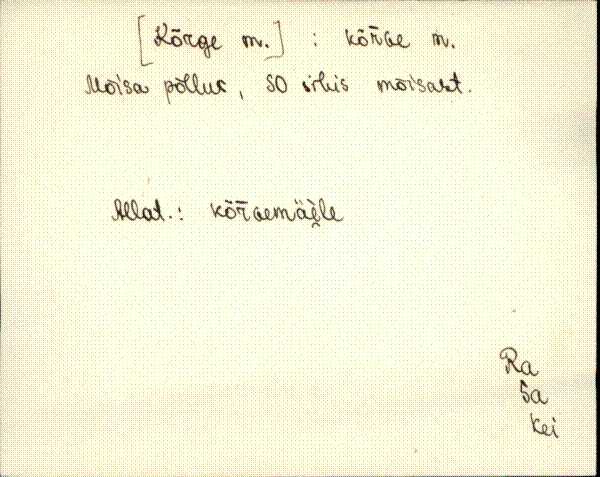 [Kõrge m.] : kõr̄ve m.
Mõisa põllus, SO sihis mõisast.
Allat.: kõr̄vemäe̬le
Ra
Sa
Kei